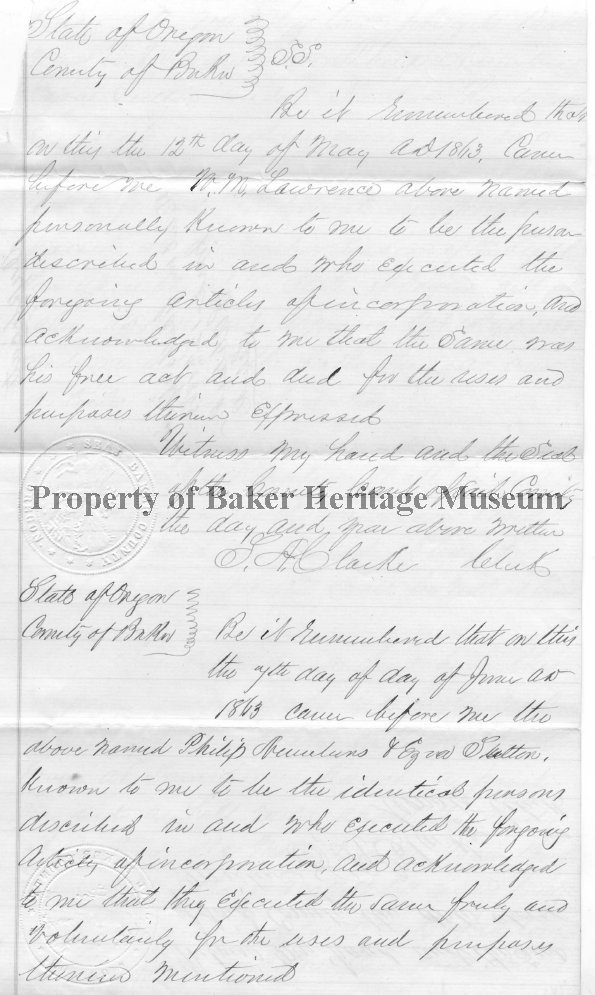 State of Oregon
County of Baker } S.S.
Be it remembered that
on this the 12th day of May AD 1863, Came
before me W. M. Lawrence above named
personally Known to me to be the person
described in and who executed the
foregoing articles of incorporation, and
acknowledged to me that the Same was
his free act and deed for the uses and
purposes therein expressed
Witness my hand and the Seal
of the County Court of Said County
Property of Baker Heritage Museum
the day and year above written
S. A. Clarke Clerk
State of Oregon
County of Baker }
Be it remembered that on this
the 7th day of day of June AD
1863 came before me the
above named Philip & Ezra Sutton,
Known to me to be the identical persons
described in and who executed the forgoing
Articles of incorporation, and acknowledged
to me that they Executed the Same freely and
Voluntarily for the uses and purposes
therein mentioned